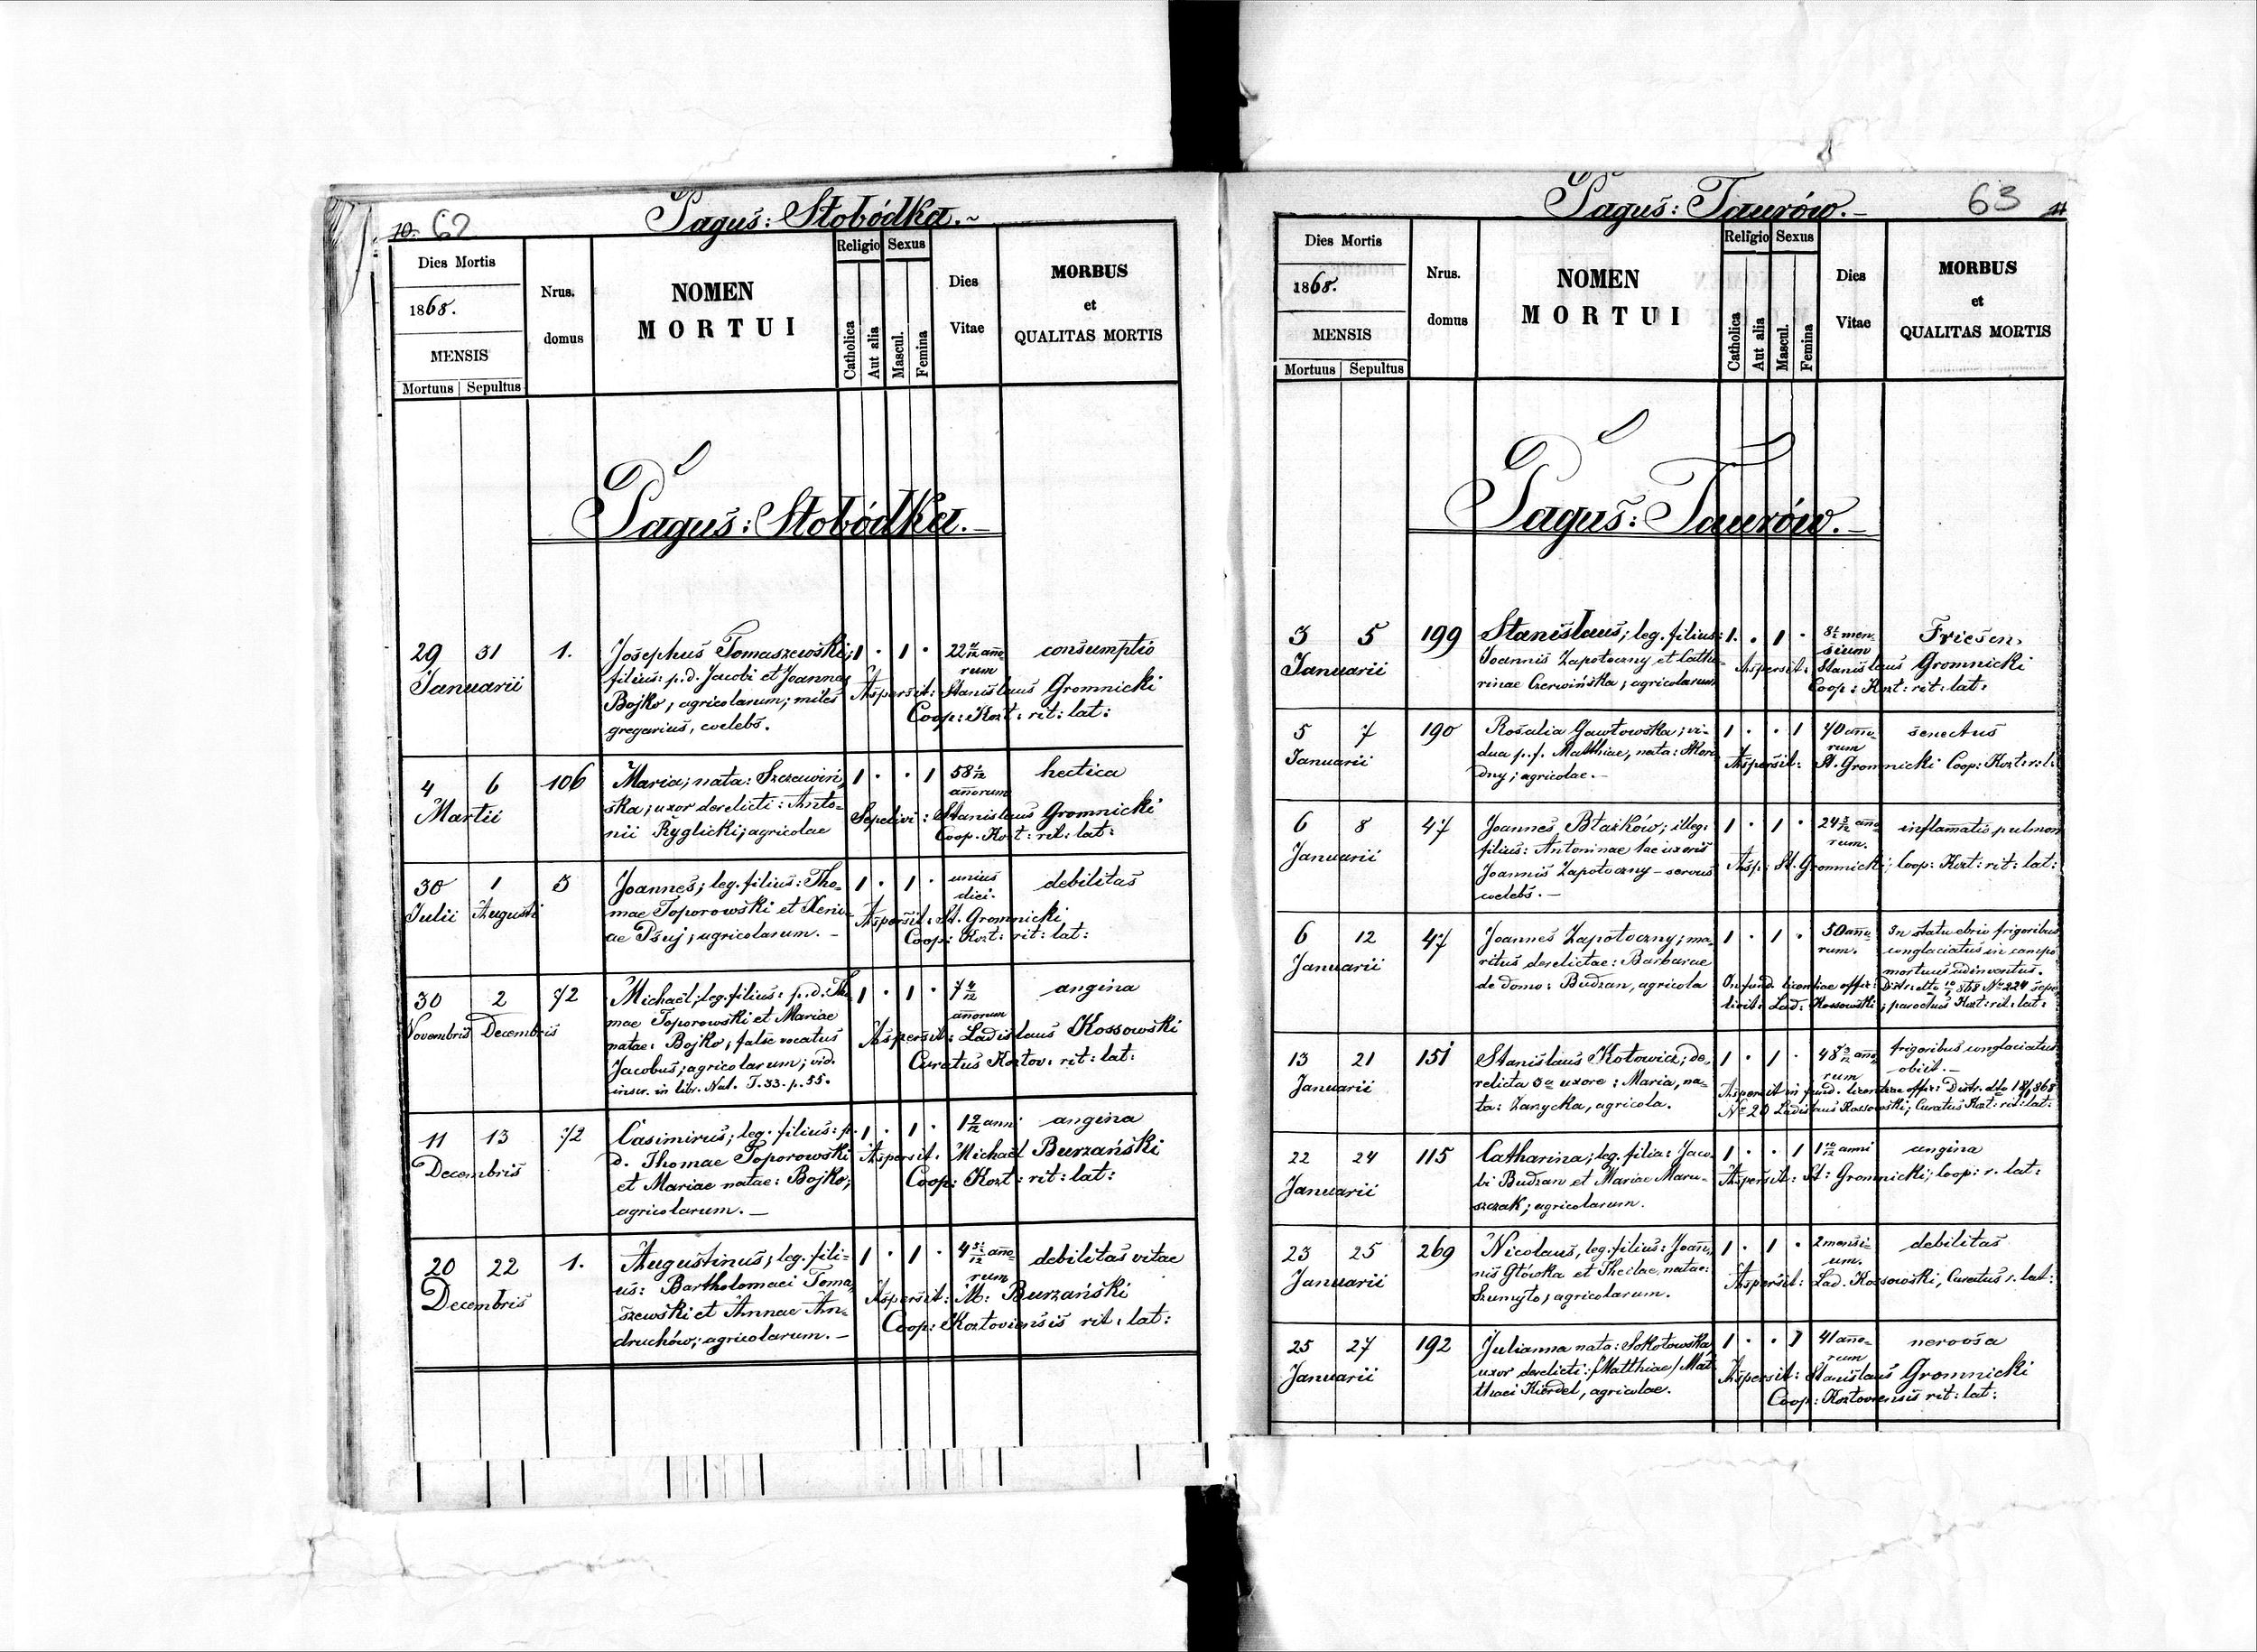 10. 62
Pagus: Słobódka.~
Dies Mortis
1868.
MENSIS
Mortuus Sepultus
Nrus.
domus
NOMEN
MORTUI
Religio Sexus
Catholica
Aut alia
Mascul.
Femina
Dies
Vitae
MORBUS
et
QUALITAS MORTIS
Pagus: Słobódka.—
29 31 1. Josephus Tomaszewski; 1 · 1 · 22 año- consumptio
Januarii filius: p.d. Jacobi et Joannae rum
Bojko, agricolarum; miles Aspersit: Stanislaus Gromnicki
gregarius, coelebs. Coop: Kozł: rit: lat:
4 6 106 Maria; nata: Szczawiń- 1 · · 1 58 hectica
Martii ska; uxor derelicti: Anto- añorum
nii Ryglicki; agricolae Sepelivi: Stanislaus Gromnicki
Coop. Kozł: rit: lat:
30 1 5 Joannes; leg. filius: Tho- 1 · 1 · unius debilitas
Julii Augusti mae Toporowski et Xeni- diei.
ae Psuj; agricolarum. — Aspersit: St. Gromnicki
Coop: Kozł: rit: lat:
30 2 72 Michaël; leg. filius: p.d. Tho- 1 · 1 · 7 angina
Novembris Decembris mae Toporowski et Mariae añorum
natae: Bojko; false vocatus Aspersit: Ladislaus Kossowski
Jacobus; agricolarum; vid. Curatus Kozłov: rit: lat:
inscr. in libr. Nat. T.33. p. 55.
11 13 72 Casimirus; leg. filius: p. 1 · 1 · 1 anni angina
Decembris d. Thomae Toporowski Aspersit: Michaël Burzański
et Mariae natae: Bojko; Coop: Kozł: rit: lat:
agricolarum. —
20 22 1. Augustinus; leg. fili- 1 · 1 · 4 año- debilitas vitae
Decembris us: Bartholomaei Toma- rum
szewski et Annae An- Aspersit: M: Burzański
druchów; agricolarum. — Coop: Kozłoviensis rit: lat:
Pagus: Taurów.—
63 11
Dies Mortis
1868.
MENSIS
Mortuus Sepultus
Nrus.
domus
NOMEN
MORTUI
Religio Sexus
Catholica
Aut alia
Mascul.
Femina
Dies
Vitae
MORBUS
et
QUALITAS MORTIS
Pagus: Taurów.—
3 5 199 Stanislaus; leg. filius: 1 · 1 · 8 men- Friesen
Januarii Joannis Zapotoczny et Catha- sium
rinae Czerwińska; agricolarum Aspersit: Stanislaus Gromnicki
Coop: Kozł: rit: lat:
5 7 190 Rosalia Gawłowska; vi- 1 · · 1 70 año- senectus
Januarii dua p. f. Matthiae, nata: rum
dny; agricolae. — Aspersit: St. Gromnicki Coop: Kozł: r: l:
6 8 47 Joannes Błażków; illeg: 1 · 1 · 24 año- inflamatio pulmon
Januarii filius: Antoninae uxoris rum.
Joannis Zapotoczny — servus Asp: St. Gromnicki; Coop: Kozł: rit: lat:
coelebs. —
6 12 47 Joannes Zapotoczny; ma- 1 · 1 · 50 año- In statu ebrio frigoribus
Januarii ritus derelictae: Barbarae rum. conglaciatus in campo
de domo: Budzan, agricola mortuus adinventus.
licentiae offic: Distr: dto 868 No 224 sepe-
livit: Lad: Kossowski; parochus Kozł: rit: lat:
13 21 151 Stanislaus Kotowicz; de- 1 · 1 · 48 año- frigoribus conglaciatus
Januarii relicta 3a uxore: Maria, na- rum obiit. —
ta: Zarycka, agricola. Aspersit in fund. licentiae offic: Distr. dto 868
No 20 Ladislaus Kossowski; Curatus Kozł: rit: lat:
22 24 115 Catharina; leg. filia: Jaco- 1 · · 1 1 anni angina
Januarii bi Budzan et Mariae Maru- Aspersit: St: Gromnicki; Coop: r. lat:
szczak; agricolarum.
23 25 269 Nicolaus, leg. filius: Joan- 1 · 1 · 2 mensi- debilitas
Januarii nis Główka et Theclae, natae: um.
Szumyło; agricolarum. Aspersit: Lad. Kossowski, Curatus r. lat:
25 27 192 Julianna nata: Sokołowska 1 · · 1 41 año- nervosa
Januarii uxor derelicti: /Matthiae/ Mat- rum
thaei Kierdel, agricolae. Aspersit: Stanislaus Gromnicki
Coop: Kozłoviensis rit: lat: